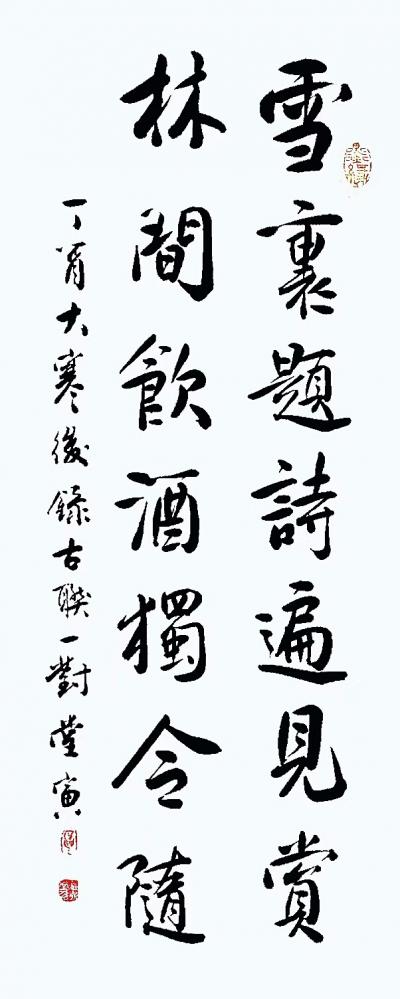 雪裏題詩遍見賞
林間飲酒獨令隨
丁酉大寒後錄古聯一對寅